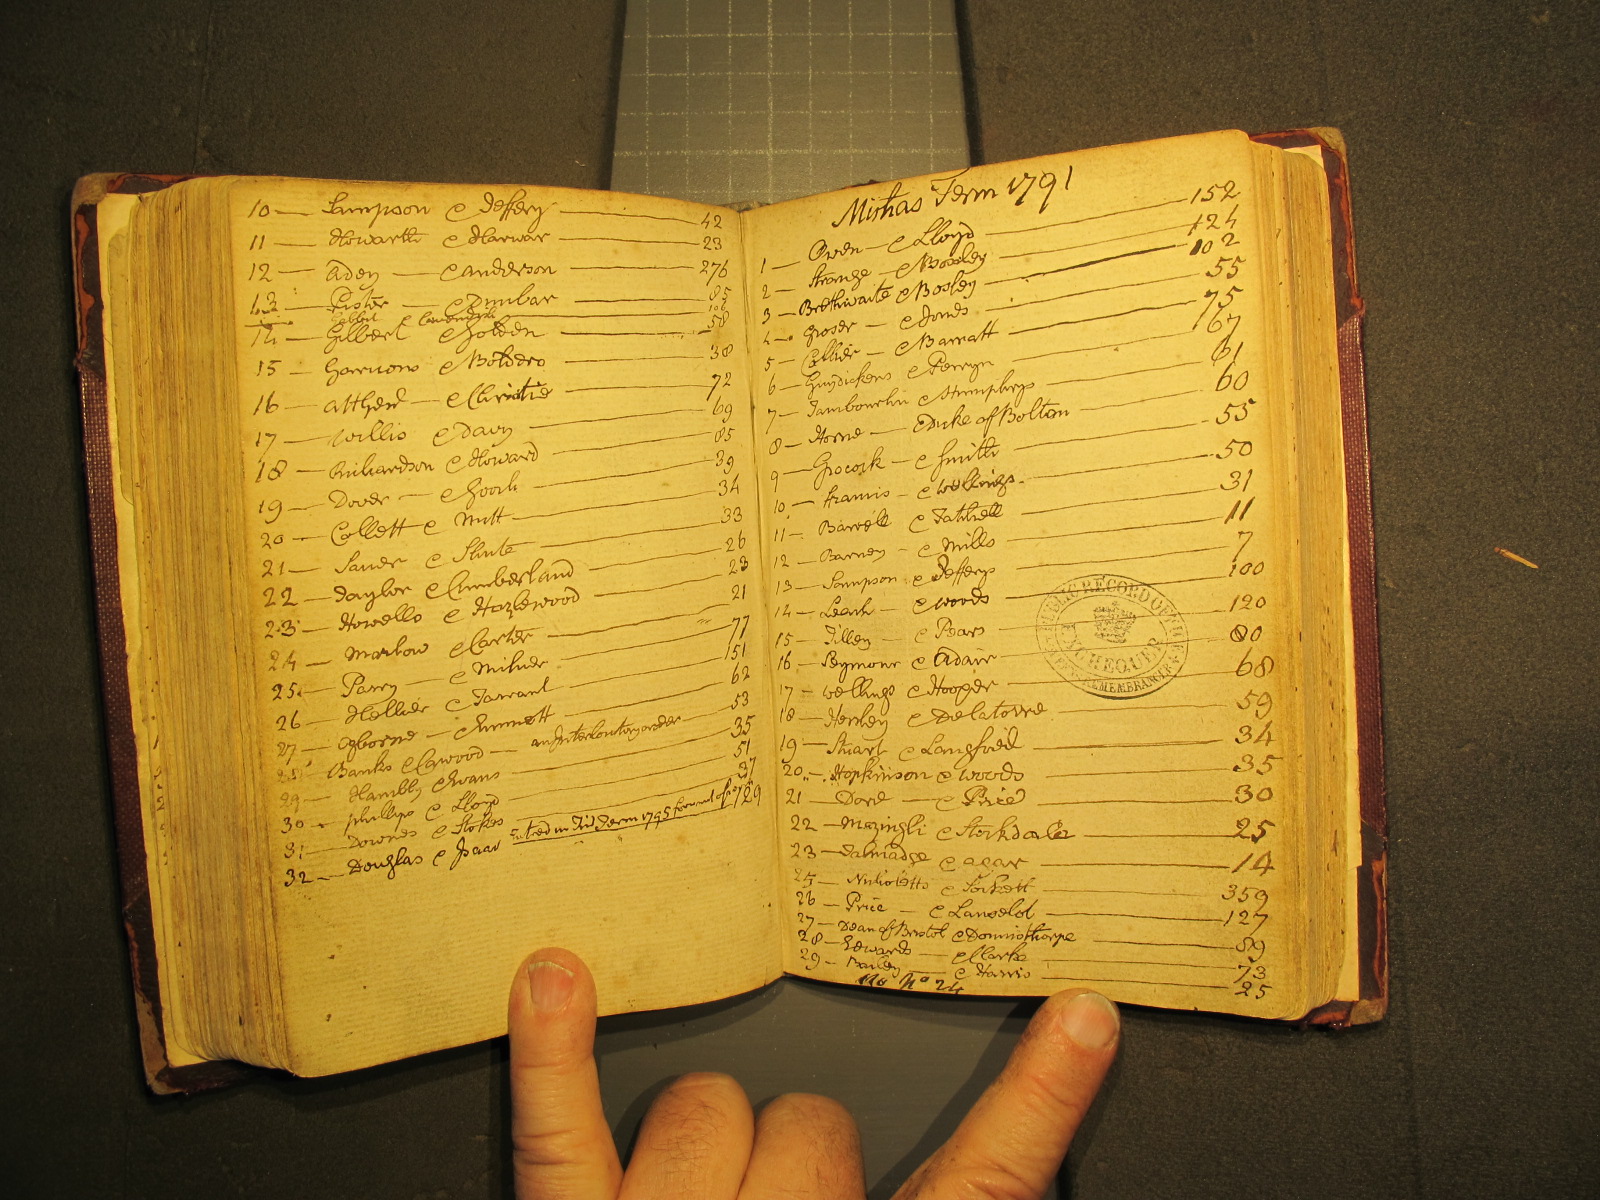 10 — Sampson c Jeffery — 42
11 — Howarth c Harwar — 23
12 — Adey — c Anderson — 276
13 — c Dunbar — 85
c Cavendish — 106
14 — Gilbert c Golden — 58
15 — Garmons c Boldero — 38
16 — c Christie — 72
17 — Willis c Davy — 69
18 — Richardson c Howard — 85
19 — Dover — c Gooch — 39
20 — Collett c Nutt — 34
21 — c Shute — 33
22 — Taylor c Cumberland — 26
23 — Howells c Hazlewood — 23
24 — Marlow c Carter — 21
25 — Parry — c Milner — 77
26 — Hellier c Tarrant — 151
27 — Ogborne — c Emmott — 62
28 Banks c Cawood — an Interlocutory order — 53
29 — Hambly c Evans — 35
30 — Phillips c Lloyd — 51
31 — Downes c Stokes — 37
32 — Douglas c Isaac Entred in Trid Term 1795 129
Michas Term 1791
1 — Owen — c Lloyd — 152
2 — Strange — c Bowley — 124
3 — Brethwaite c Bosley — 102
4 — Groser — c Jones — 55
5 — Collier — c Barratt — 75
6 — Guydickens c Perryn — 67
7 — c Humphrys — 61
8 — Horne — c Duke of Bolton — 60
9 — Grocock — c Smith — 55
10 — Francis — c Wellings — 50
11 — Barwell c Tathell — 31
12 — Barney — c Mills — 11
13 — Sampson c Jefferys — 7
14 — Leach — c Woods — 100
15 — Tilley — c Pears — 120
16 — Seymour c Adair — 80
17 — Wellings c Hooper — 68
18 — Henley c Delatorre — 59
19 — Stuart c Langford — 34
20 — Hopkinson c Woods — 35
21 — Dord — c Price — 30
22 — Mazingli c Stockdale — 25
23 — Talmadge c Agar — 14
25 — c Sockett — 359
26 — Price — c Lancelot — 127
27 — Dean of Bristol c Donnisthorpe — 89
28 — Edwards — c Clarke — 73
29 — Bailey — c Harris — 25
No No 24
PUBLIC RECORD OFFICE
EXCHEQUER
REMEMBRANCER